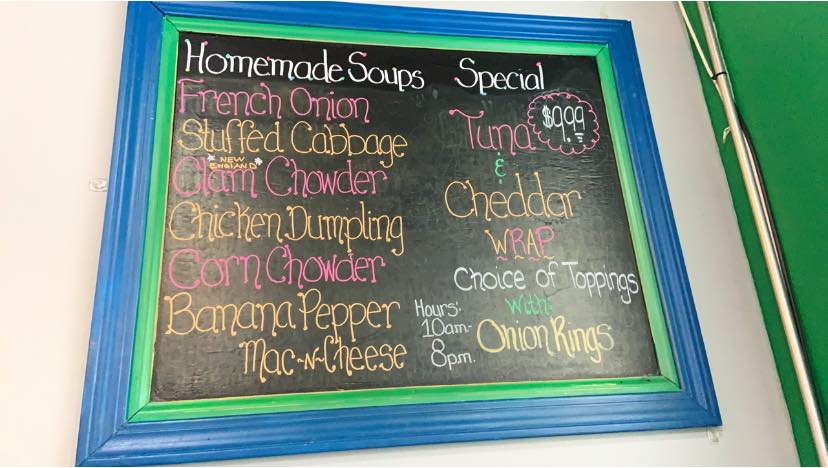 Homemade Soups
French Onion
Stuffed Cabbage
*NEW ENGLAND*
Clam Chowder
Chicken Dumpling
Corn Chowder
Banana Pepper
Mac-N-Cheese
Special
$9.99
Tuna
&
Cheddar
WRAP
Choice of Toppings
With:
Onion Rings
Hours:
10am-
8pm.